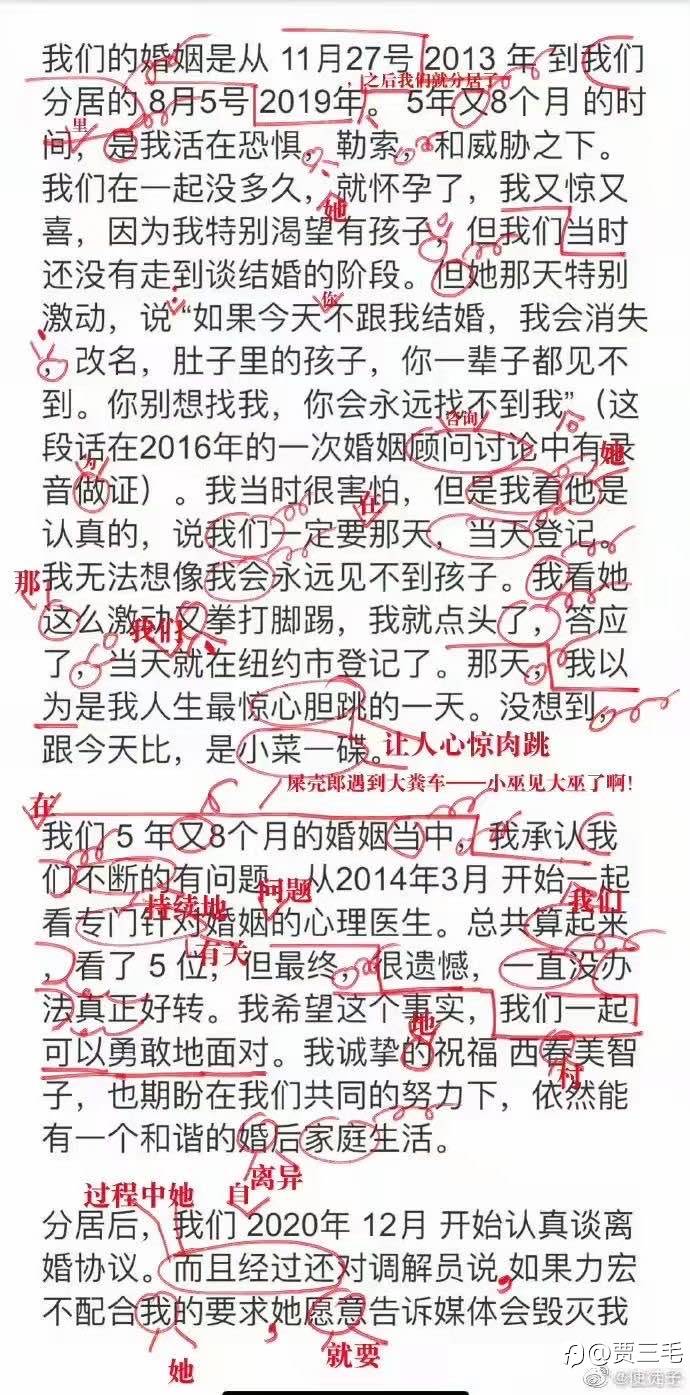 我们的婚姻是从 11月27号 2013 年 到我们
之后我们就分居了
分居的 8月5号 2019年。 5年又8个月 的时
里
间，是我活在恐惧，勒索，和威胁之下。
我们在一起没多久，就怀孕了，我又惊又
她
喜，因为我特别渴望有孩子，但我们当时
还没有走到谈结婚的阶段。但她那天特别
你
激动，说 “如果今天不跟我结婚，我会消失
，改名，肚子里的孩子，你一辈子都见不
到。你别想找我，你会永远找不到我”（这
咨询
段话在2016年的一次婚姻顾问讨论中有录
为
她
音做证）。我当时很害怕，但是我看他是
在
认真的，说我们一定要那天，当天登记。
我无法想像我会永远见不到孩子。我看她
那
这么激动又拳打脚踢，我就点头了，答应
我们
了，当天就在纽约市登记了。那天，我以
为是我人生最惊心胆跳的一天。没想到，
跟今天比，是小菜一碟。
让人心惊肉跳
屎壳郎遇到大粪车——小巫见大巫了啊！
在
我们 5 年又8个月的婚姻当中，我承认我
们不断的有问题，从2014年3月 开始一起
持续地
问题
我们
看专门针对婚姻的心理医生。总共算起来
有关
，看了 5 位，但最终，很遗憾，一直没办
法真正好转。我希望这个事实，我们一起
可以勇敢地面对。我诚挚的祝福 西春美智
地
村
子，也期盼在我们共同的努力下，依然能
有一个和谐的婚后家庭生活。
离异
过程中她
自
分居后，我们 2020年 12月 开始认真谈离
婚协议。而且经过还对调解员说,如果力宏
不配合我的要求她愿意告诉媒体会毁灭我
她
就要
@贾三毛